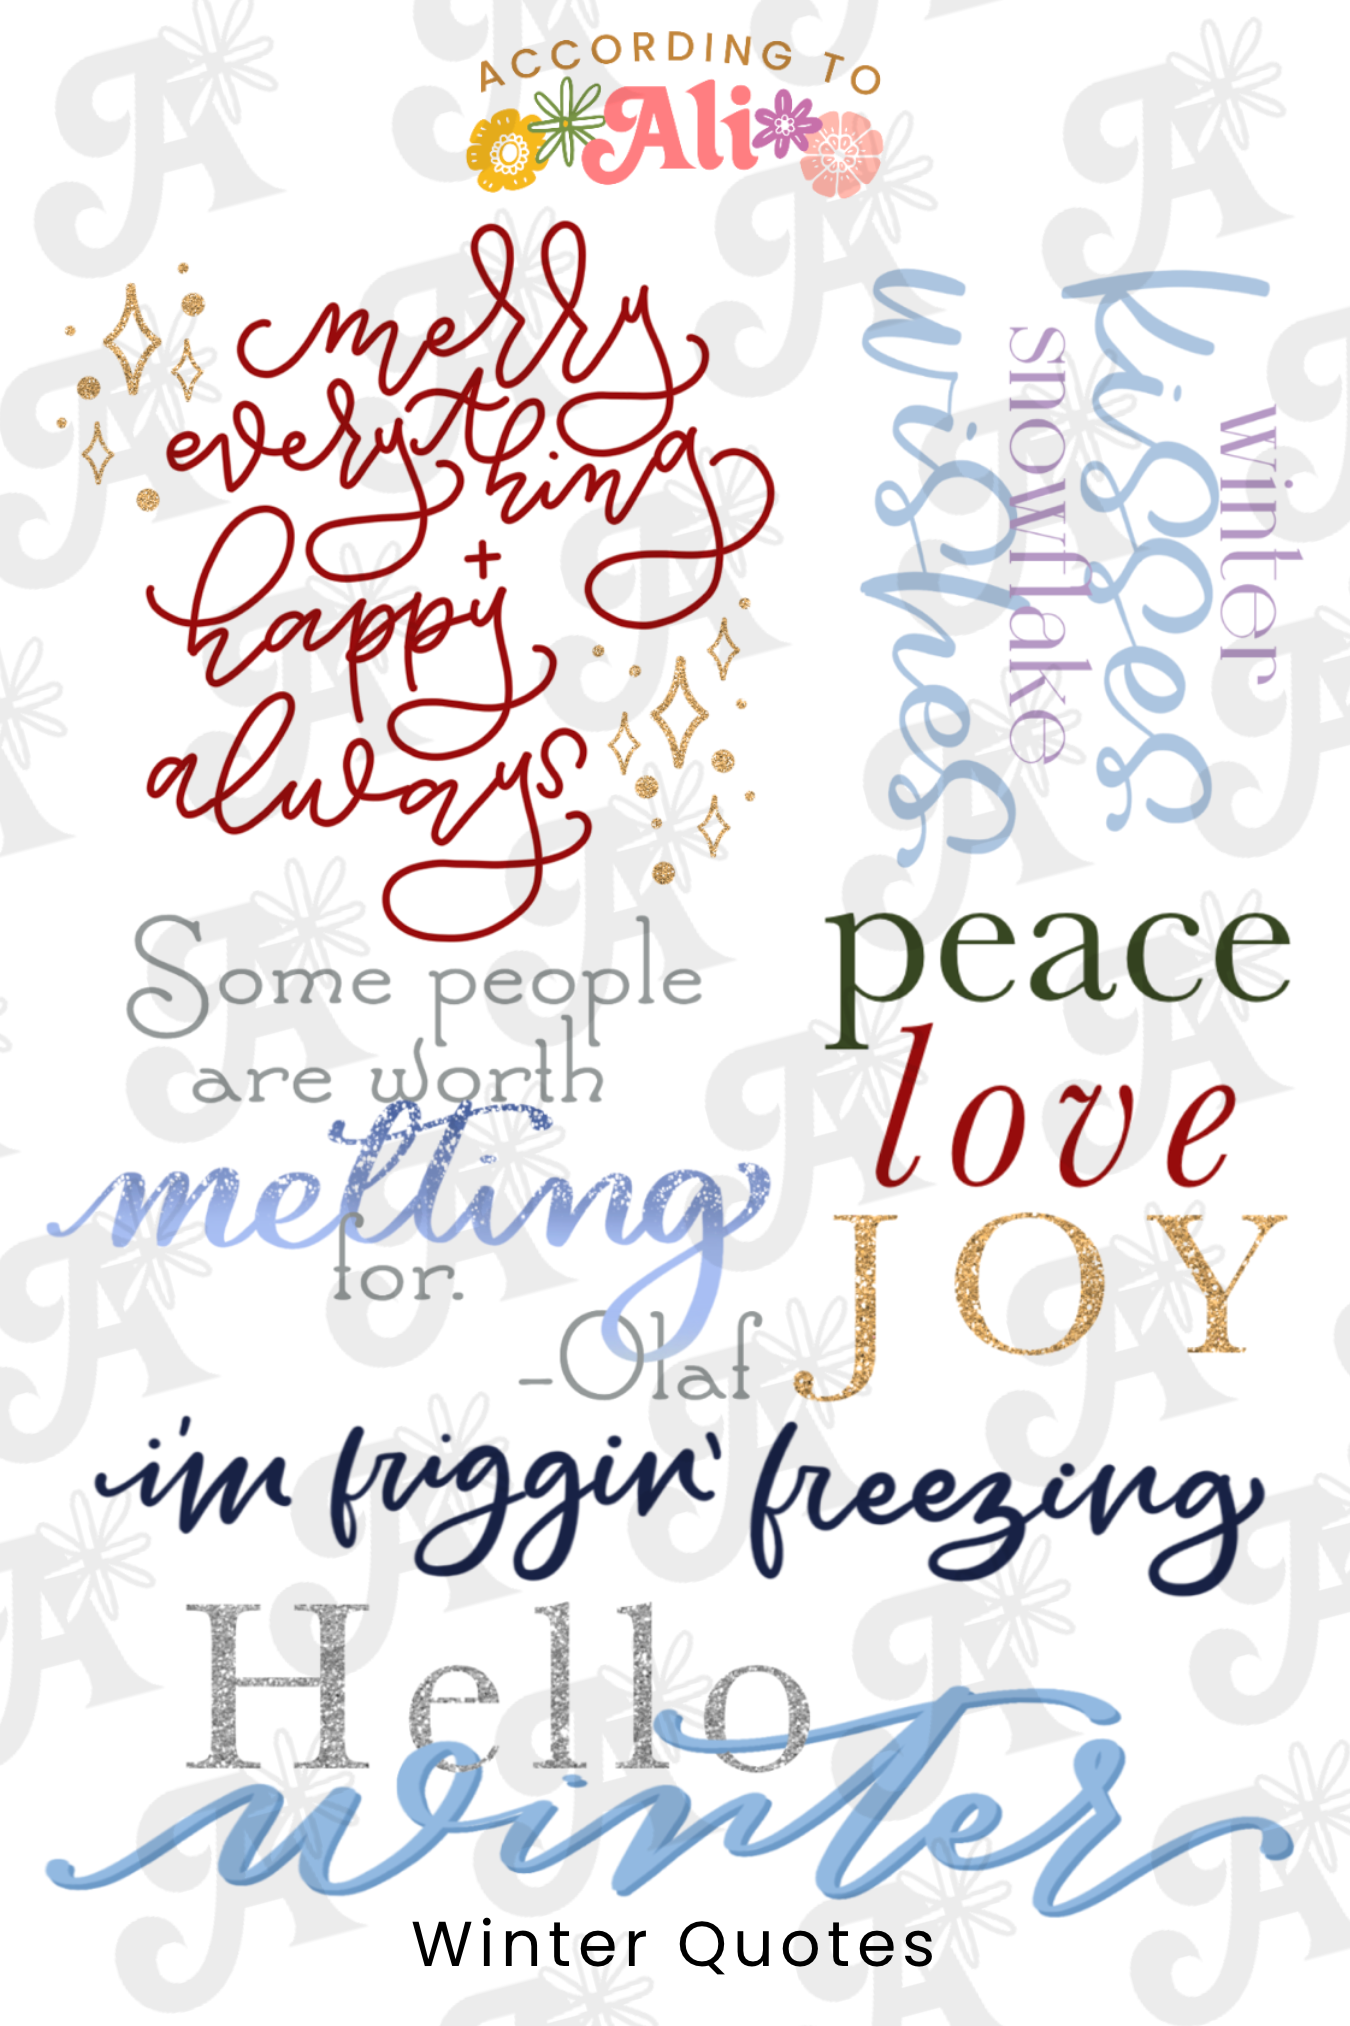 ACCORDING TO
Ali
merry
everything
+
happy
always
winter
kisses
snowflake
wishes
Some people
are worth
melting
for.
-Olaf
peace
love
JOY
i'm friggin' freezing
Hello
winter
Winter Quotes